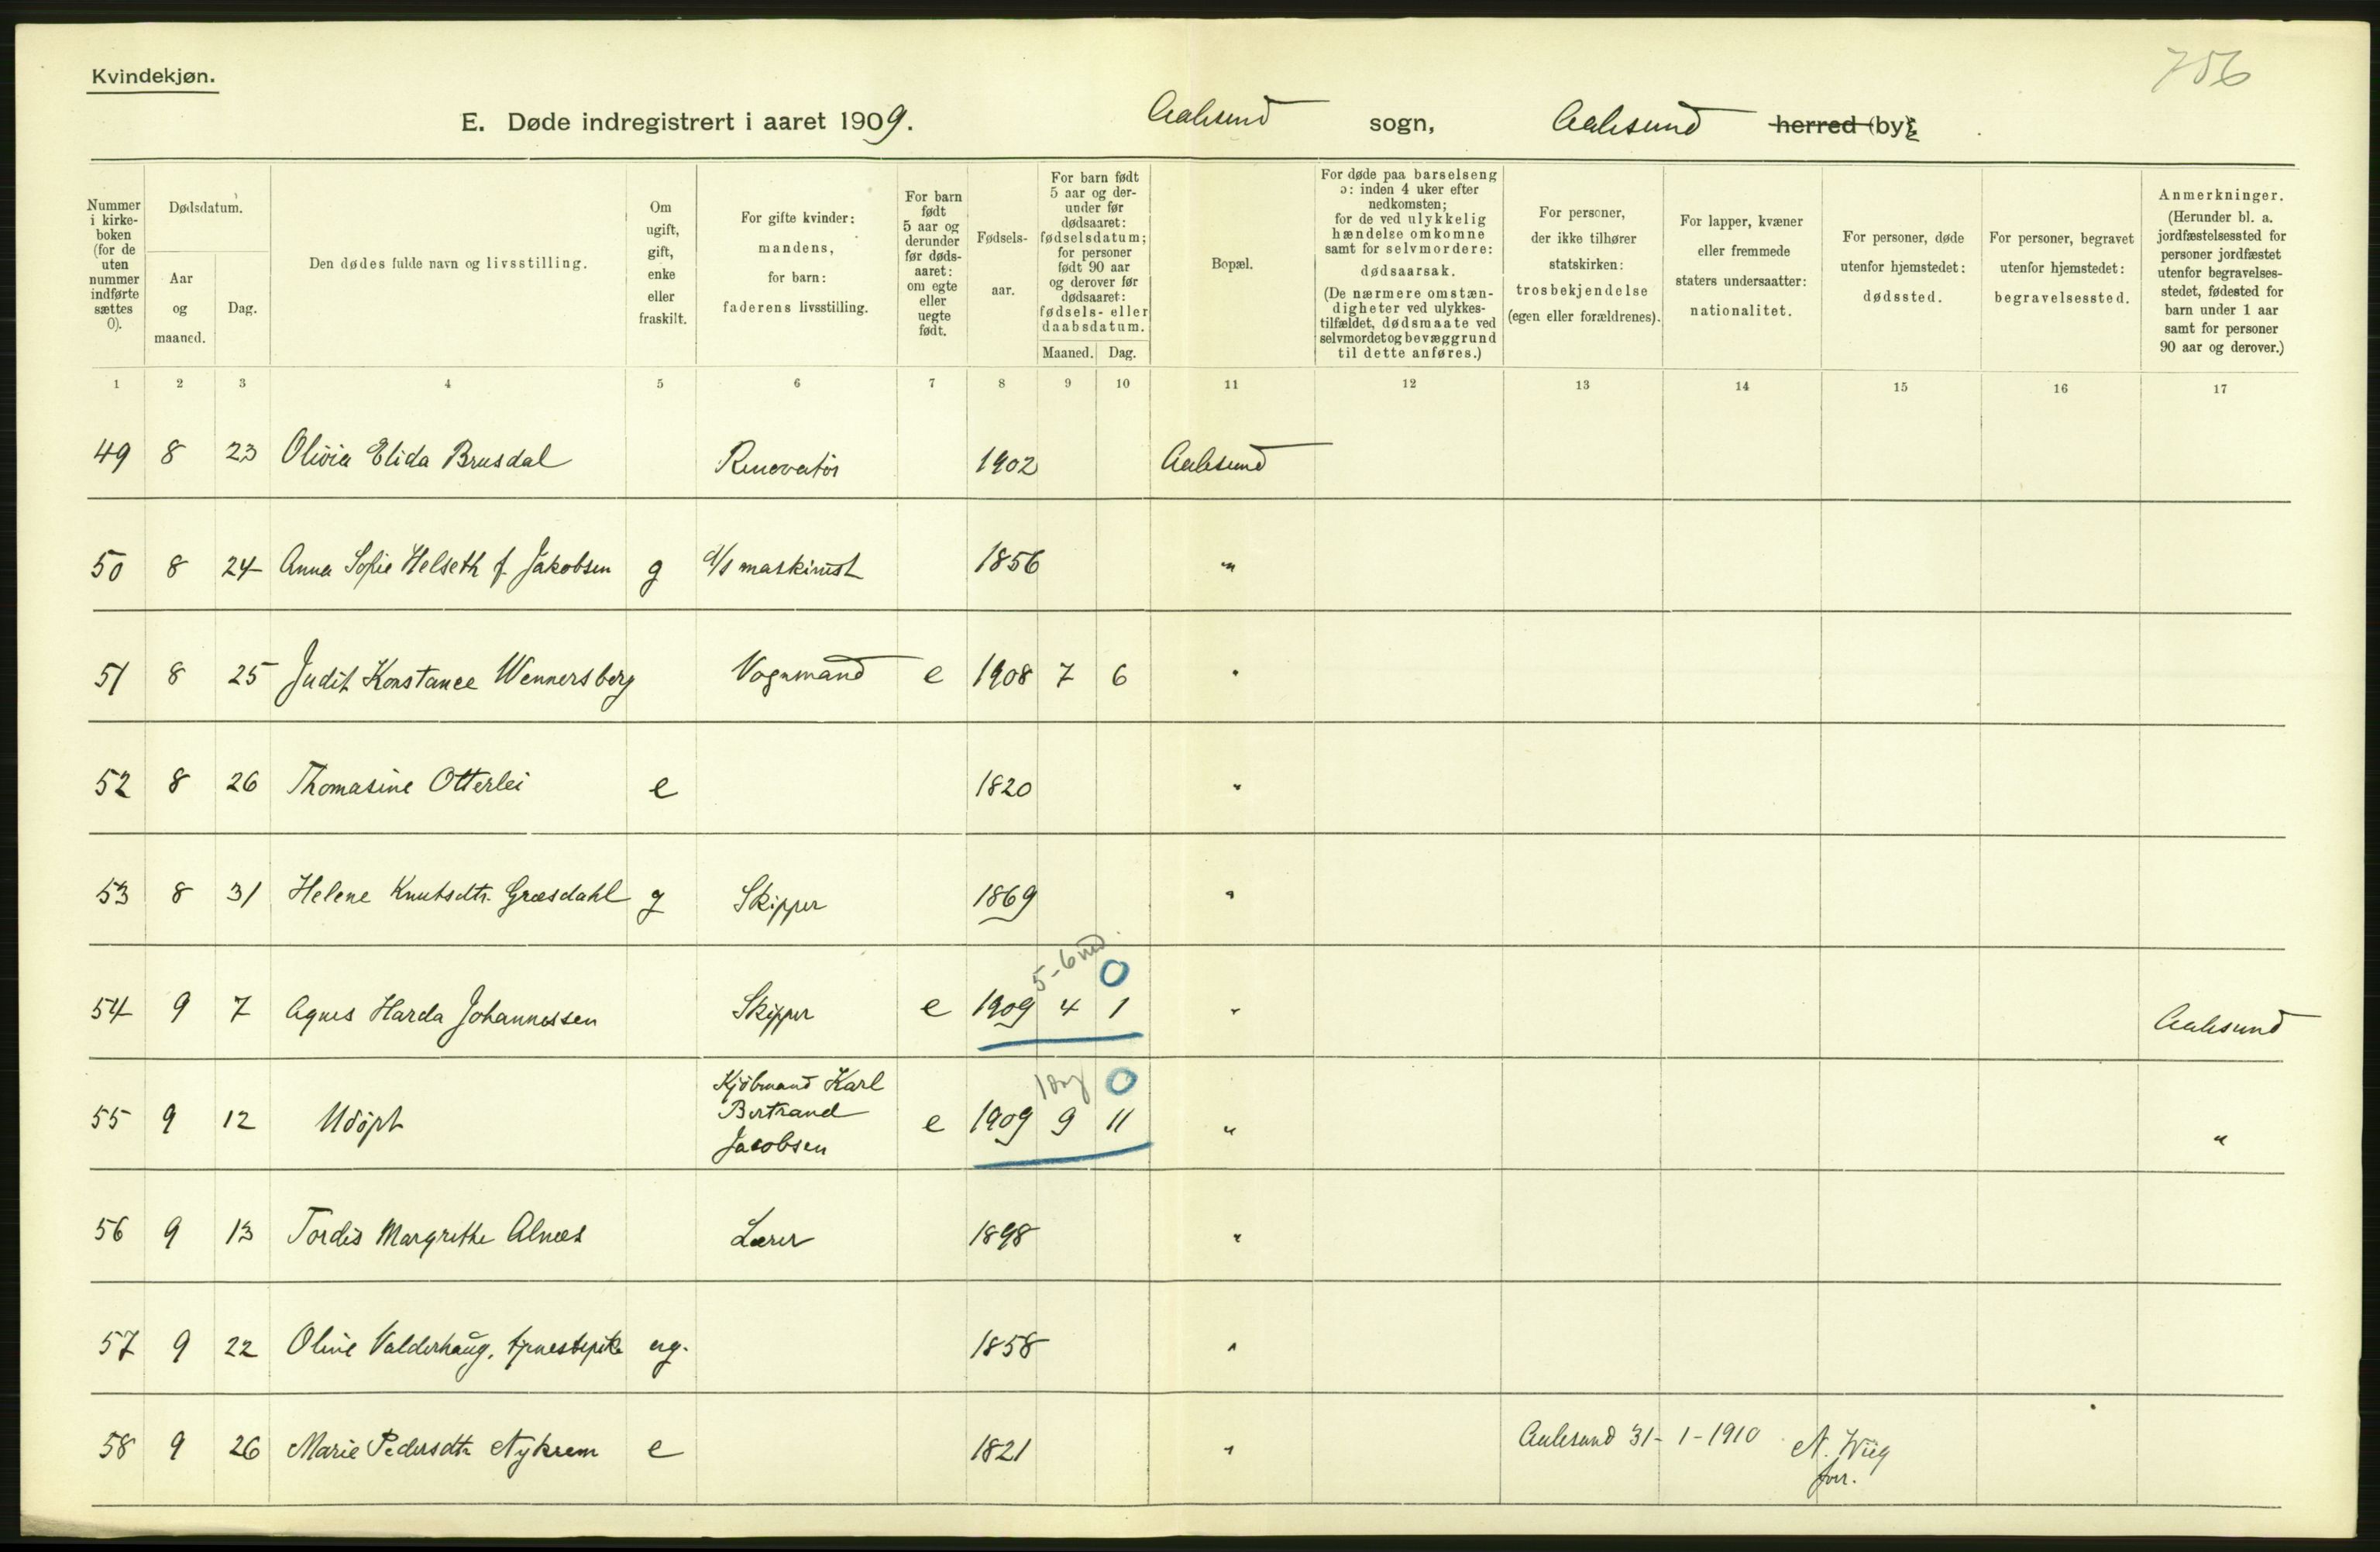 Kvindekjøn.
756
E. Døde indregistrert i aaret 1909. Aalesund sogn, Aalesund herred (by).
Nummer i kirke-boken (for de uten nummer indførte sættes 0).
Dødsdatum.
Aar og maaned.
Dag.
Den dødes fulde navn og livsstilling.
Om ugift, gift, enke eller fraskilt.
For gifte kvinder: mandens, for barn: faderens livsstilling.
For barn født 5 aar og derunder før døds-aaret: om egte eller uegte født.
Fødsels-aar.
For barn født 5 aar og der-under før dødsaaret: fødselsdatum; for personer født 90 aar og derover før dødsaaret: fødsels- eller daabsdatum.
Maaned. Dag.
Bopæl.
For døde paa barselseng ɔ: inden 4 uker efter nedkomsten; for de ved ulykkelig hændelse omkomne samt for selvmordere: dødsaarsak. (De nærmere omstæn-digheter ved ulykkes-tilfældet, dødsmaate ved selvmordet og bevæggrund til dette anføres.)
For personer, der ikke tilhører statskirken: trosbekjendelse (egen eller forældrenes).
For lapper, kvæner eller fremmede staters undersaatter: nationalitet.
For personer, døde utenfor hjemstedet: dødssted.
For personer, begravet utenfor hjemstedet: begravelsessted.
Anmerkninger. (Herunder bl. a. jordfæstelsessted for personer jordfæstet utenfor begravelses-stedet, fødested for barn under 1 aar samt for personer 90 aar og derover.)
1 2 3 4 5 6 7 8 9 10 11 12 13 14 15 16 17
49 8 23 Olivia Elida Brusdal Renovatør 1902 Aalesund
50 8 24 Anna Sofie Helseth f. Jakobsen g d/s maskinist 1856 "
51 8 25 Judit Konstance Wennersberg Vognmand e 1908 7 6 "
52 8 26 Thomasine Otterlei e 1820 "
53 8 31 Helene Knutsdtr. Græsdahl g Skipper 1869 "
5-6 md 0
54 9 7 Agnes Harda Johannessen Skipper e 1909 4 1 " Aalesund
1 dag 0
55 9 12 Udøpt Kjøbmand Karl Bertrand Jacobsen e 1909 9 11 " "
56 9 13 Tordis Margrethe Alnæs Lærer 1898 "
57 9 22 Oline Valderhaug, tjenestepike ug. 1858 "
58 9 26 Marie Pedersdtr Nykrem e 1821 "
Aalesund 31-1-1910 N. Wiig